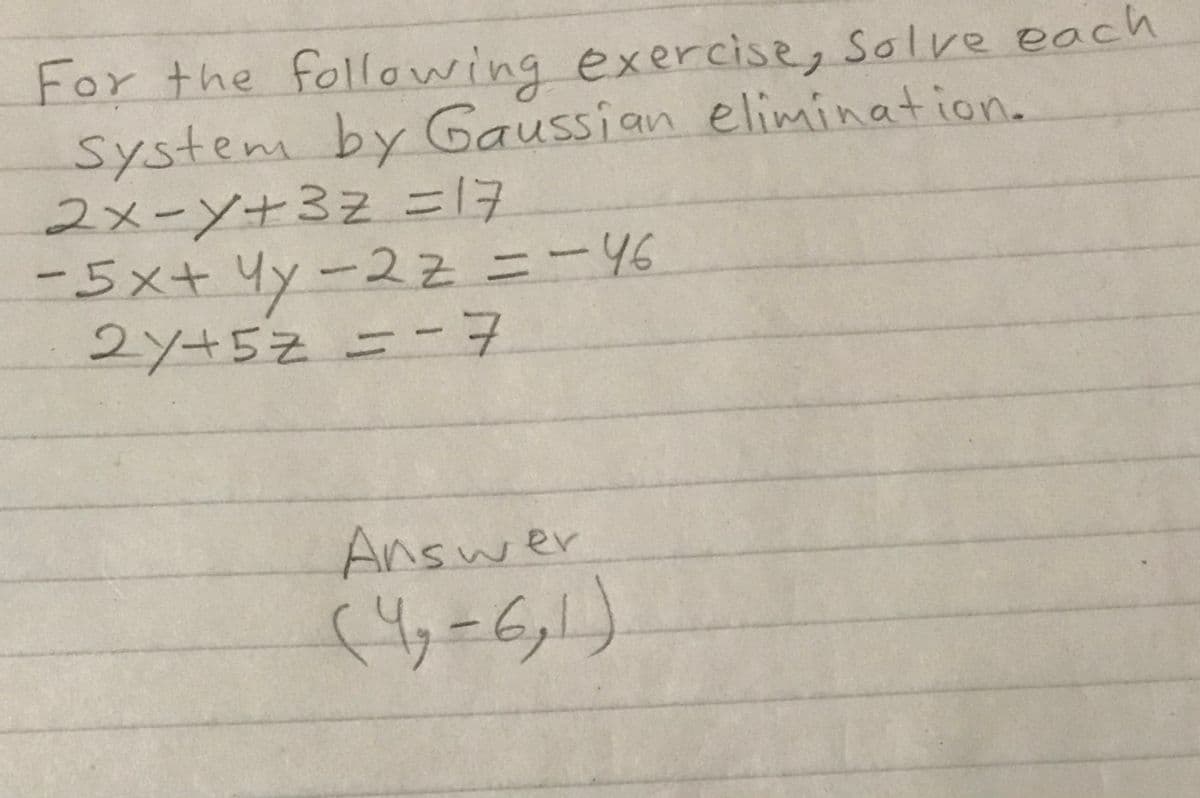 For the following exercise, Solve each
system by Gaussian elimination.
2x-y+3z =17
-5x+4y-2z =-46
2y+5z =-7
Answer
(4,-6,1)